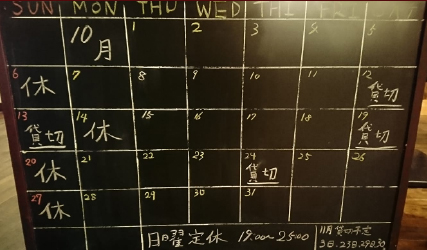 SUN MON THU WED THU FRI SAT
10月 1 2 3 4 5
6 休 7 8 9 10 11 12 貸切
13 貸切 14 休 15 16 17 18 19 貸切
20 休 21 22 23 24 貸切 25 26
27 休 28 29 30 31
日曜定休 19:00~25:00
11月貸切予定